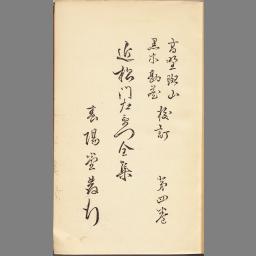 高野斑山
黒木勘蔵 校訂 第四巻
近松門左衛門全集
春陽堂發行